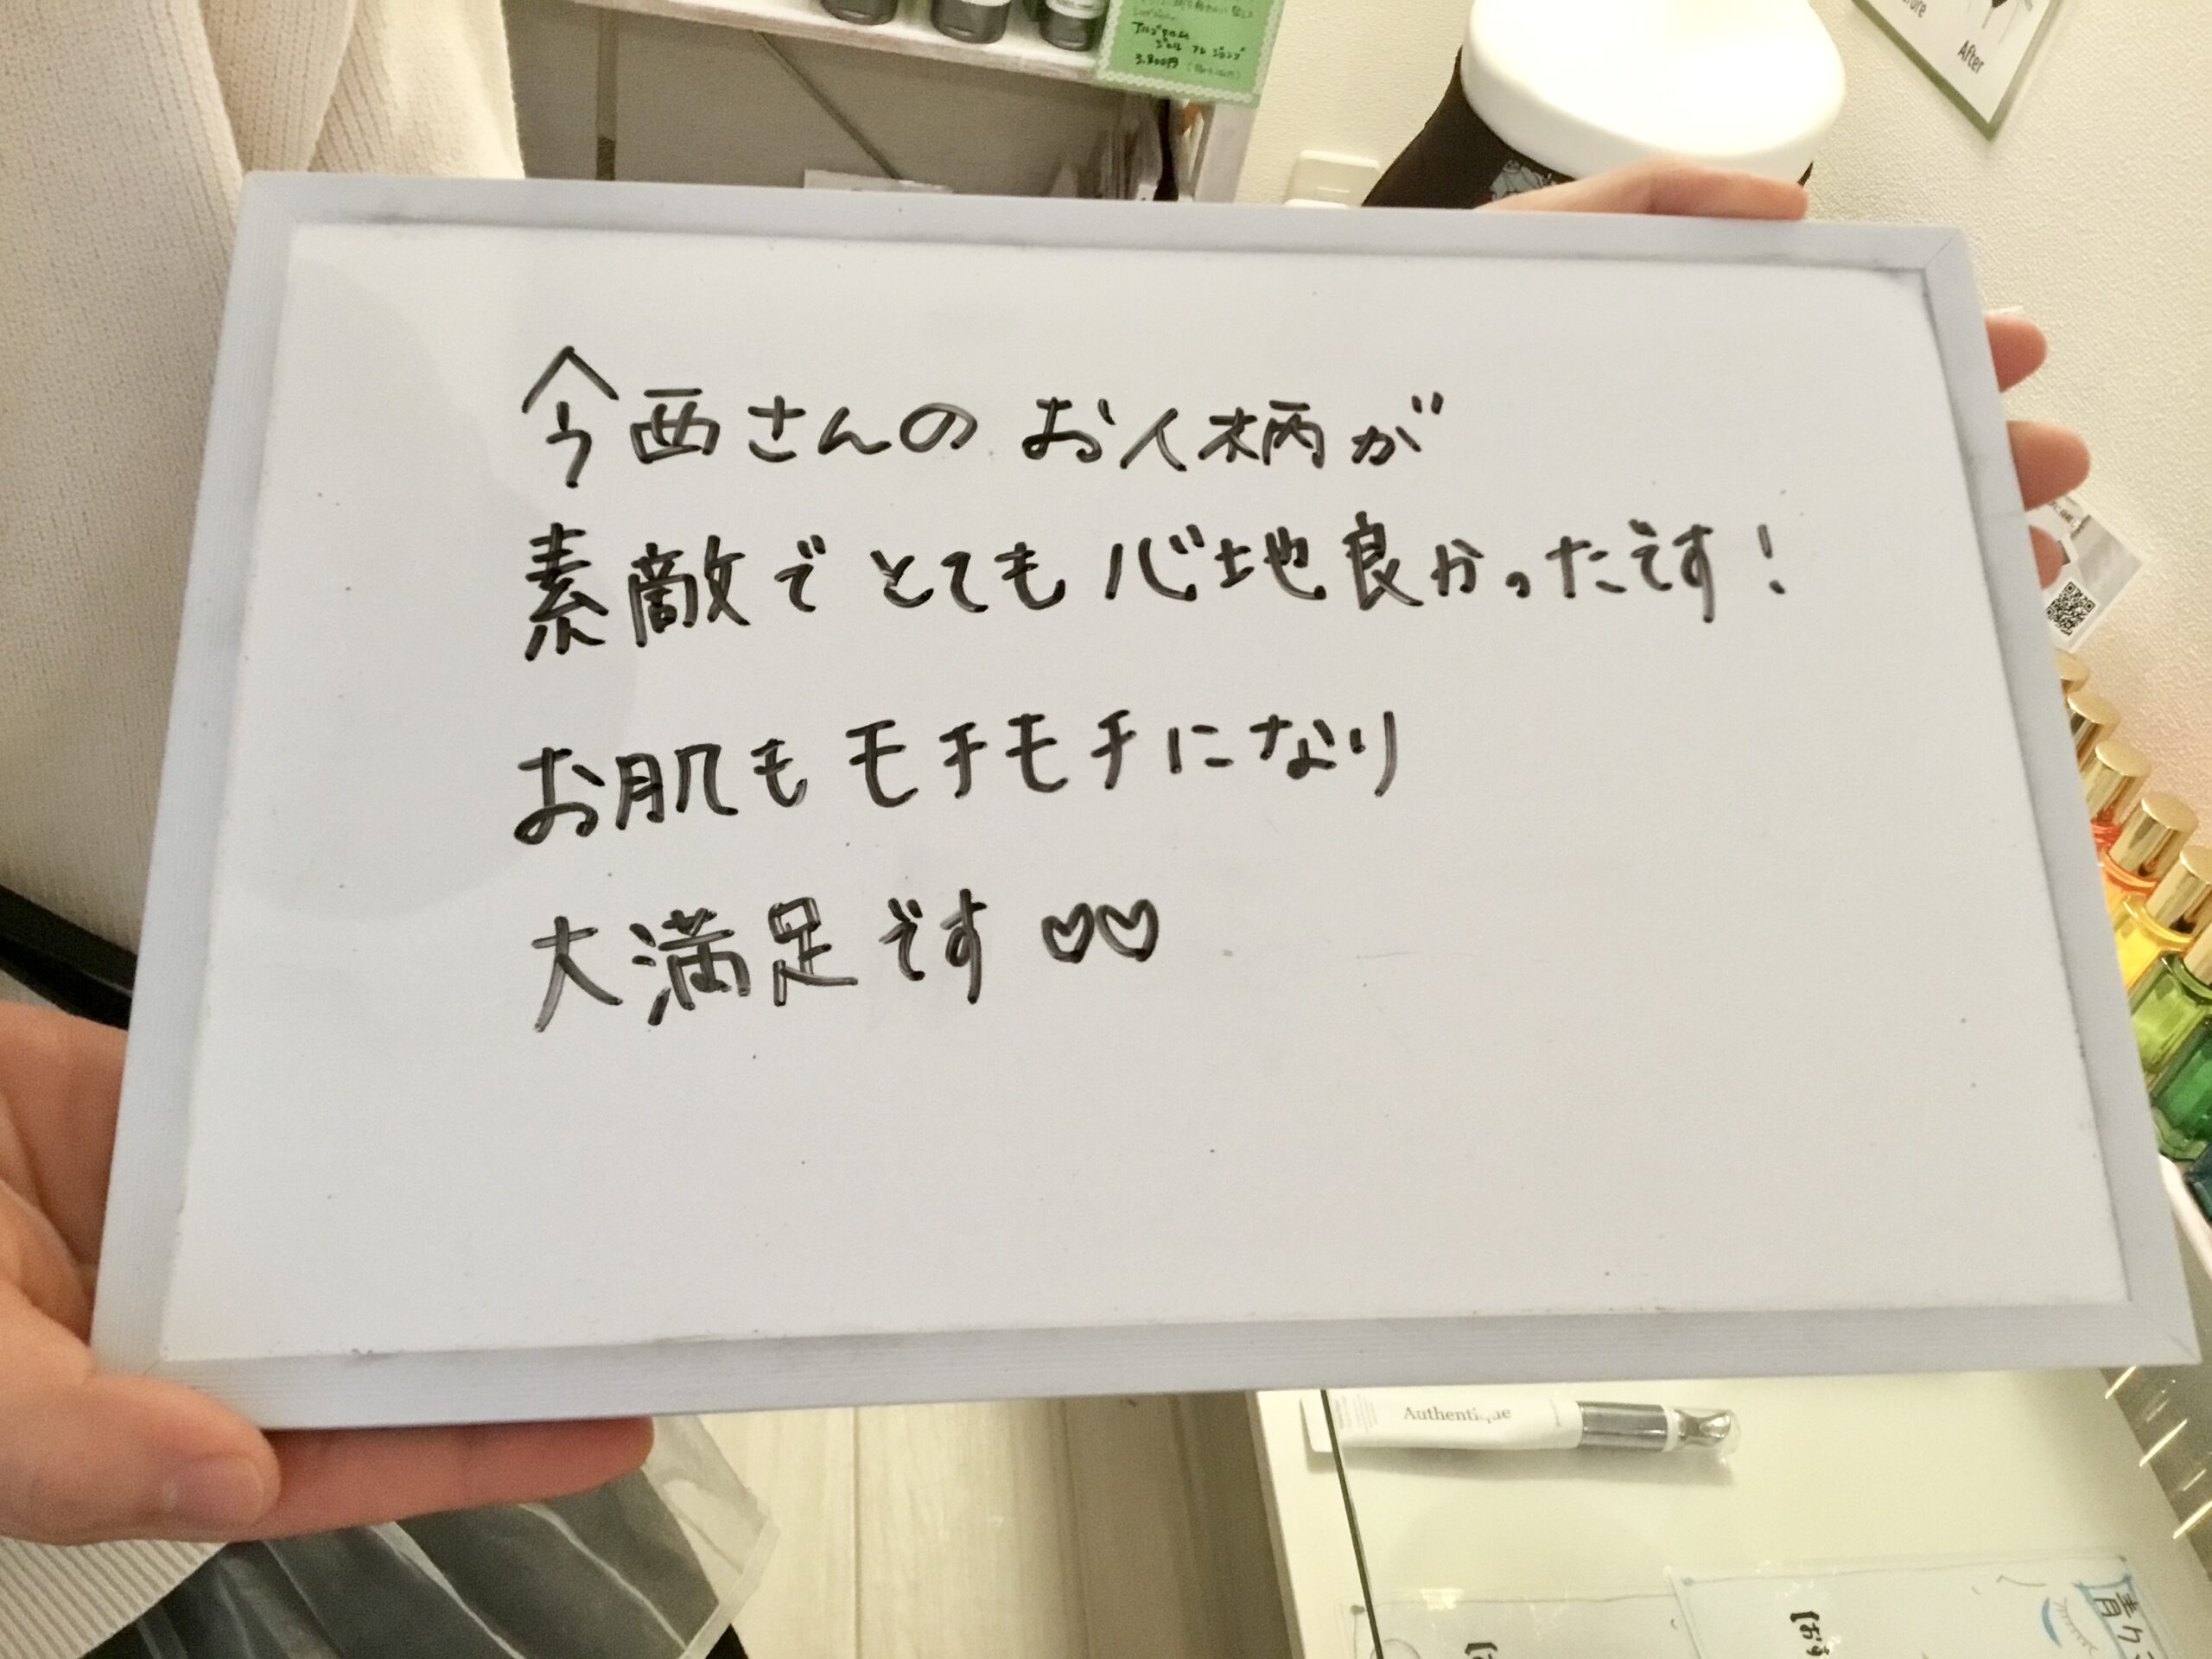 今西さんのお人柄が
素敵でとても心地良かったです！
お肌もモチモチになり
大満足です♡♡
After
3,800円
Authentique